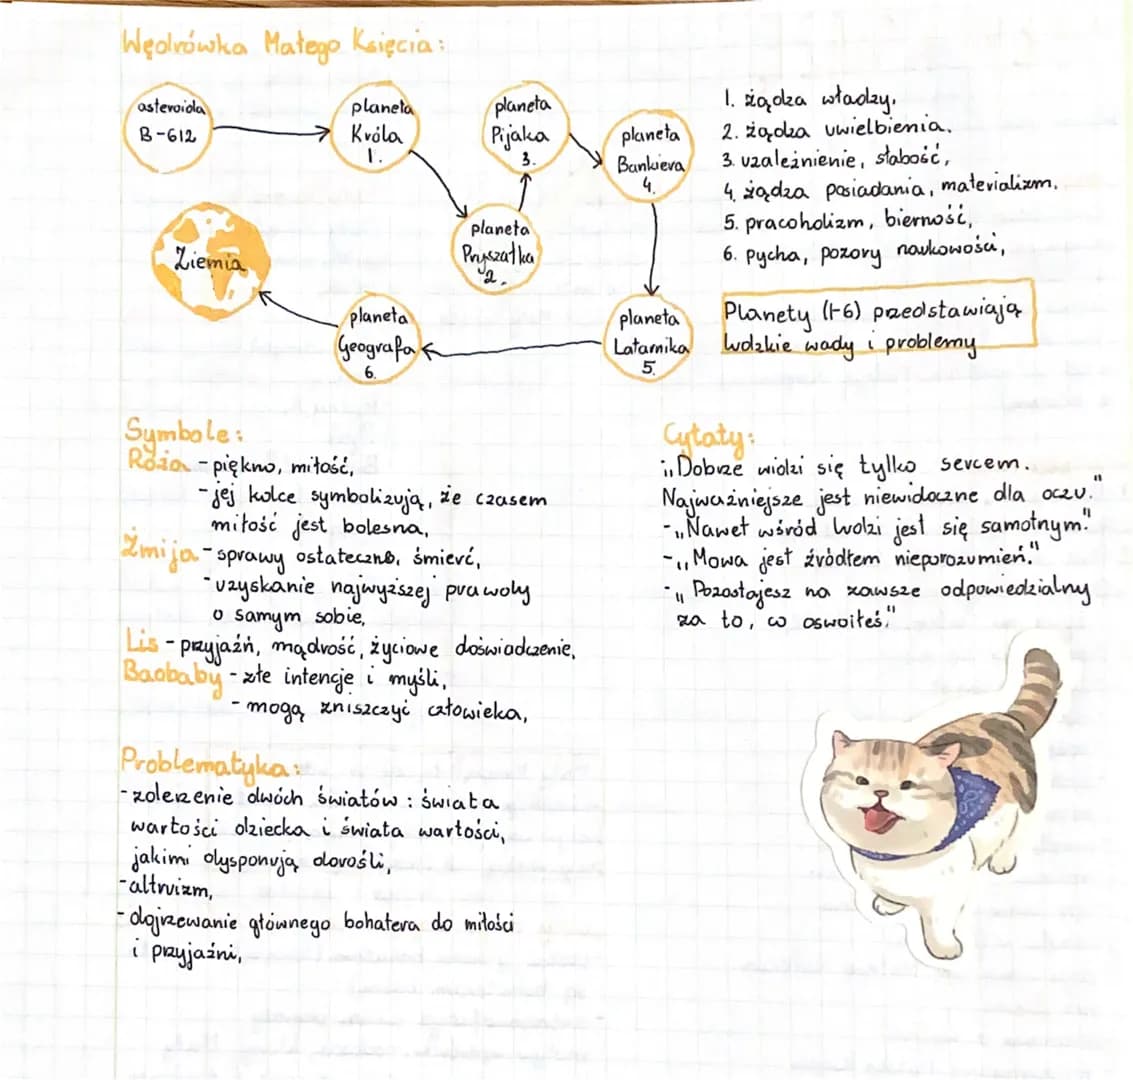 Wędrówka Małego Księcia:
asteroida
B-612
planeta
Króla
1.
planeta
Pryszałka
2.
planeta
Pijaka
3.
planeta
Bankiera
4.
planeta
Latarnika
5.
planeta
Geografa
6.
Ziemia
1. żądza władzy,
2. żądza uwielbienia.
3. uzależnienie, słabość,
4. żądza posiadania, materializm.
5. pracoholizm, bierność,
6. pycha, pozory naukowości,
Planety (1-6) przedstawiają
ludzkie wady i problemy
Symbole:
Róża - piękno, miłość,
- jej kolce symbolizują, że czasem
miłość jest bolesna,
Żmija - sprawy ostateczne, śmierć,
- uzyskanie najwyższej prawdy
o samym sobie,
Lis - przyjaźń, mądrość, życiowe doświadczenie,
Baobaby - złe intencje i myśli,
- mogą zniszczyć człowieka,
Problematyka:
- zderzenie dwóch światów: świata
wartości dziecka i świata wartości,
jakimi dysponują dorośli,
- altruizm,
- dojrzewanie głównego bohatera do miłości
i przyjaźni,
Cytaty:
„Dobrze widzi się tylko sercem.
Najważniejsze jest niewidoczne dla oczu."
- „Nawet wśród ludzi jest się samotnym."
- „Mowa jest źródłem nieporozumień."
- „Pozostajesz na zawsze odpowiedzialny
za to, co oswoiłeś."